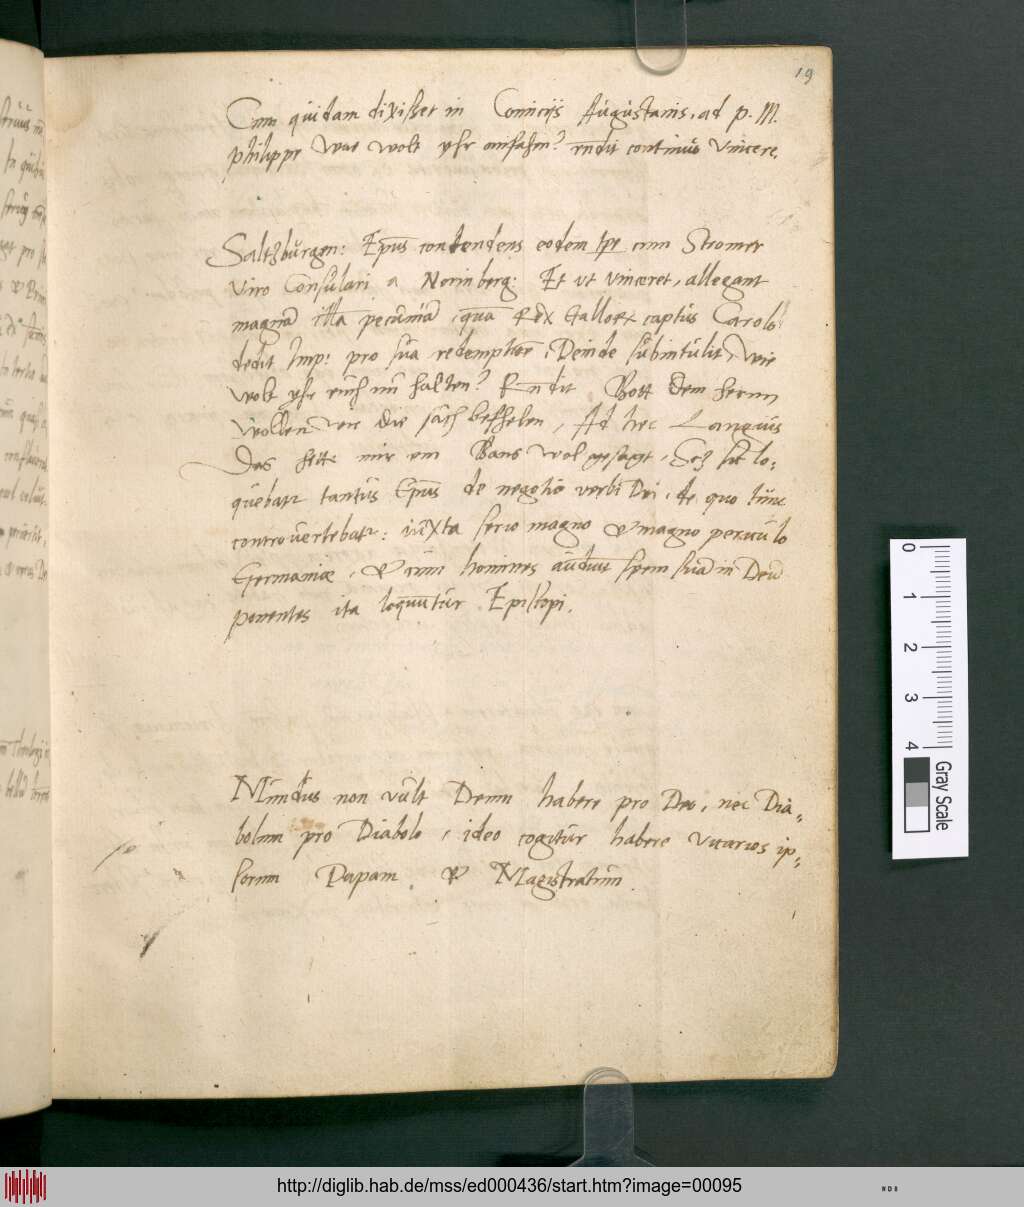 19
Cum quidam dixisset in Comicijs Augustanis, ad p. M.
philippe was wolt yhr anfahen? rndit continuo vincere.
Saltzburgen: Epus contendens eodem tpr cum Stromer
viro Consulari a Norinberg: Et vt vinceret, allegaut
magna illa pecunia, qua Rex Gallorx captus Carolo
dedit Imp: pro sua redemptione, Deinde subintulit, wie
wolt yhr euch nu halten? Rndit Gott dem hernn
wollen wir die sach befhelen, Ad hec Langius
Das hette mir ein Gans wol gesagt, Scz sic lo„
quebatr tantus Epus de negotio verbi Dei, de quo tunc
controvertebatr: iuxta serio magno & magno periculo
Germaniæ, & cum homines audiut spem sua in Deu
ponentes ita loquutur Episcopi.
Mundus non vult Deum habere pro Deo, nec Dia„
bolum pro Diabolo, ideo cogitur habere vicarios ip„
sorum Papam & Magistratum
0
1
2
3
4
Gray Scale
http://diglib.hab.de/mss/ed000436/start.htm?image=00095